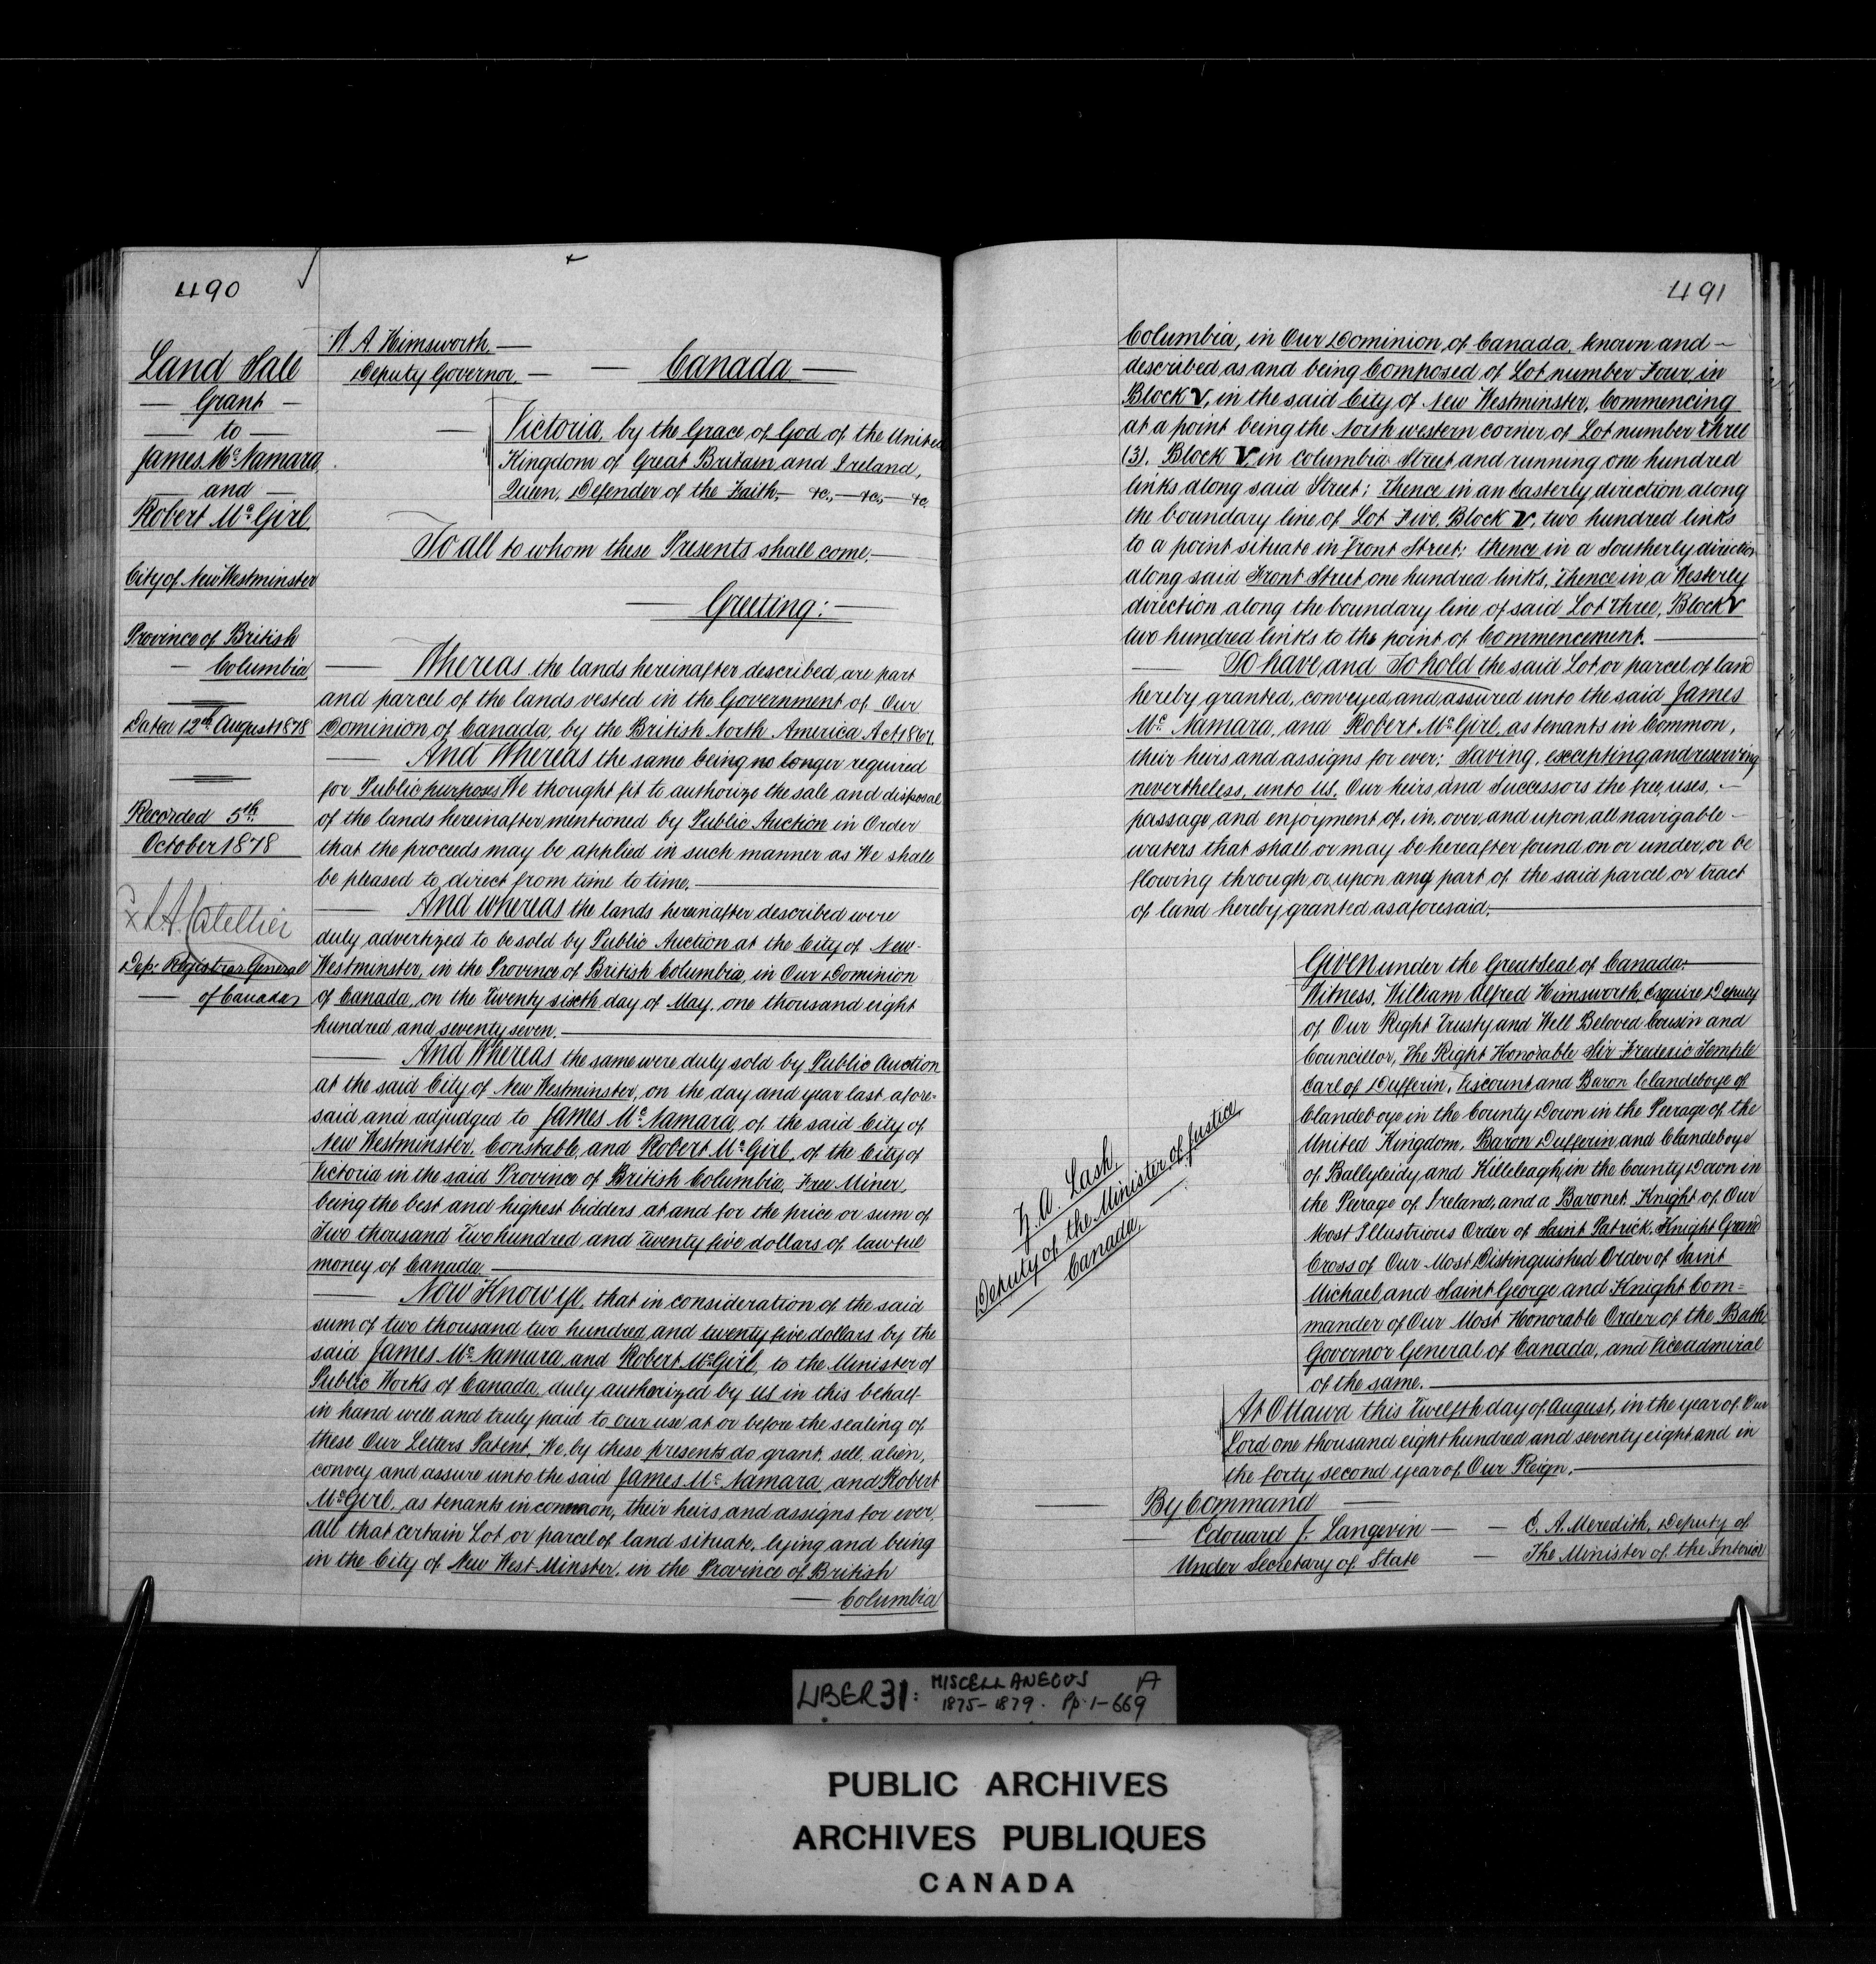 490
Land Sale
Grant
to
James Mc Namara
and
Robert Mc Girl.
City of New Westminster
Province of British
Columbia
Dated 12th August 1878
Recorded 5th
October 1878
Dep: Registrar General
of Canada
W. A. Himsworth.
Deputy Governor.
Canada
Victoria, by the Grace of God of the United
Kingdom of Great Britain and Ireland,
Queen, Defender of the Faith, &c., &c., &c.
To all to whom these Presents shall come.
Greeting:
Whereas the lands hereinafter described are part
and parcel of the lands vested in the Government of Our
Dominion of Canada, by the British North America Act 1867.
And Whereas the same being no longer required
for Public purposes We thought fit to authorize the sale and disposal
of the lands hereinafter mentioned by Public Auction in Order
that the proceeds may be applied in such manner as We shall
be pleased to direct from time to time.
And whereas the lands hereinafter described were
duly advertized to be sold by Public Auction at the City of New-
Westminster, in the Province of British Columbia, in Our Dominion
of Canada, on the twenty sixth day of May, one thousand eight
hundred and seventy seven.
And Whereas the same were duly sold by Public Auction
at the said City of New Westminster, on the day and year last afore=
said and adjudged to James Mc Namara, of the said City of
New Westminster, Constable, and Robert Mc Girl, of the City of
Victoria in the said Province of British Columbia, Free Miner,
being the best and highest bidders at and for the price or sum of
Two thousand Two hundred and twenty five dollars of lawful
money of Canada.
Now Know ye, that in consideration of the said
sum of two thousand two hundred and twenty five dollars by the
said James Mc Namara, and Robert McGirl, to the Minister of
Public Works of Canada, duly authorized by us in this behalf
in hand well and truly paid to our use at or before the sealing of
these Our Letters Patent, We, by these presents do grant, sell, alien,
convey and assure unto the said James Mc Namara, and Robert
McGirl, as tenants in common, their heirs and assigns for ever,
all that certain Lot or parcel of land situate, lying and being
in the City of New West-Minster, in the Province of British
Columbia
491
Columbia, in Our Dominion of Canada, known and
described as and being Composed of Lot number Four, in
Block V, in the said City of New Westminster, Commencing
at a point being the North western corner of Lot number Three
(3), Block V, in Columbia Street and running one hundred
links along said Street; Thence in an Easterly direction along
the boundary line of Lot Five, Block V, two hundred links
to a point situate in Front Street; thence in a Southerly direction
along said Front Street one hundred links, Thence in a Westerly
direction along the boundary line of said Lot Three, Block V
two hundred links to the point of Commencement.
To have and To hold the said Lot or parcel of land
hereby granted, conveyed and assured unto the said James
Mc Namara, and Robert Mc Girl, as tenants in Common,
their heirs and assigns for ever; Saving, excepting and reserving
nevertheless, unto us, Our heirs and Successors the free uses,
passage and enjoyment of, in, over, and upon all navigable
waters that shall or may be hereafter found on or under, or be
flowing through or upon any part of the said parcel or tract
of land hereby granted as aforesaid.
Z. A. Lash,
Deputy of the Minister of Justice
Canada
Given under the Great Seal of Canada:
Witness, William Alfred Himsworth, Esquire Deputy
of Our Right Trusty and Well Beloved Cousin and
Councillor, The Right Honorable Sir Frederic Temple
Earl of Dufferin, Viscount and Baron Clandeboye of
Clandeboye in the County Down in the Peerage of the
United Kingdom, Baron Dufferin and Clandeboye
of Ballyleidy and Killeleagh, in the County Down in
the Peerage of Ireland, and a Baronet, Knight of Our
Most Illustrious Order of Saint Patrick, Knight Grand
Cross of Our Most Distinguished Order of Saint
Michael, and Saint George and Knight Com=
mander of Our Most Honorable Order of the Bath
Governor General of Canada, and Viceadmiral
of the same.
At Ottawa this Twelfth day of August, in the year of Our
Lord one thousand eight hundred and seventy eight and in
the forty second year of Our Reign.
By Command
Edouard J. Langevin
Under Secretary of State
C. A. Meredith, Deputy of
The Minister of the Interior
LIBER 31: MISCELLANEOUS A
1875-1879. Pp. 1-669
PUBLIC ARCHIVES
ARCHIVES PUBLIQUES
CANADA